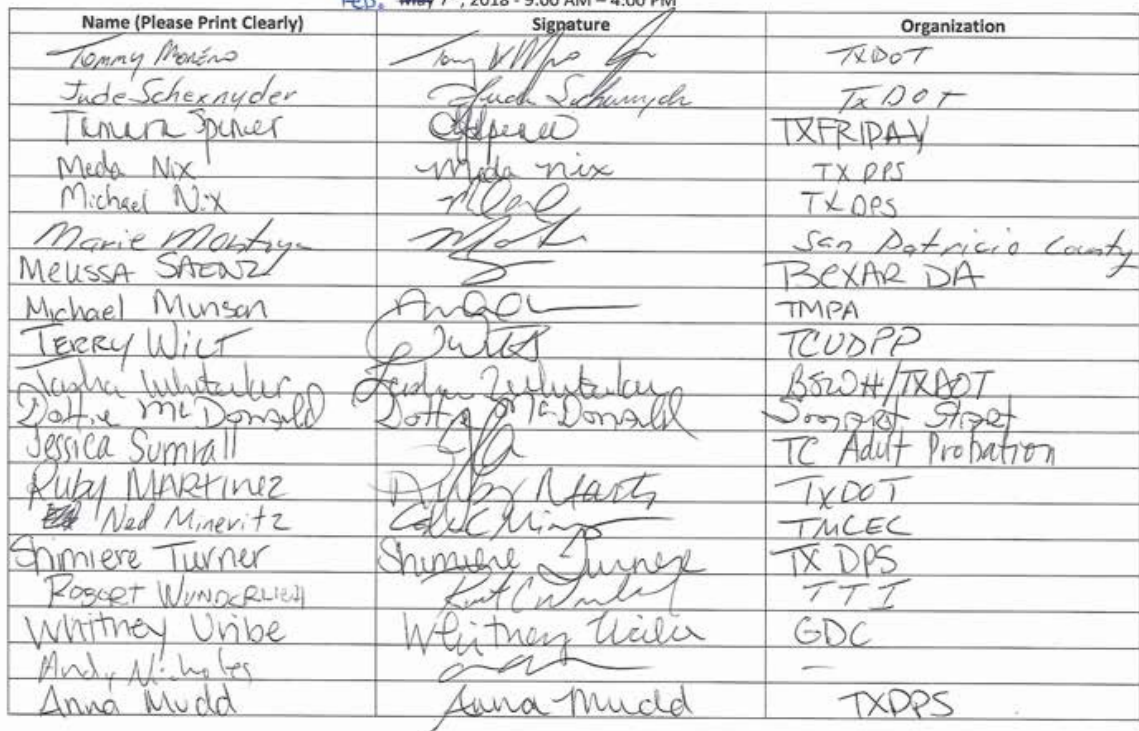 Feb. May 7, 2018 - 9:00 AM – 4:00 PM
Name (Please Print Clearly) Signature Organization
Tommy Moreno TXDOT
Jude Schexnyder TxDOT
Tamara Spencer TXFRIDAY
Meda Nix Meda Nix TX DPS
Michael Nix TX DPS
Marie Montoya San Patricio County
MELISSA SAENZ BEXAR DA
Michael Munson TMPA
TERRY WILT TCUDPP
Tasha Whitaker Tasha Whitaker BSWH/TXDOT
Dottie McDonald Dottie McDonald Smart Start
Jessica Sumrall TC Adult Probation
Ruby MARTINEZ Ruby TXDOT
Ned Minevitz TMCEC
Shimiere Turner Shimiere Turner TX DPS
ROBERT WUNDERLICH TTI
Whitney Uribe Whitney Uribe GDC
Andy Nicholes —
Anna Mudd Anna Mudd TXDPS